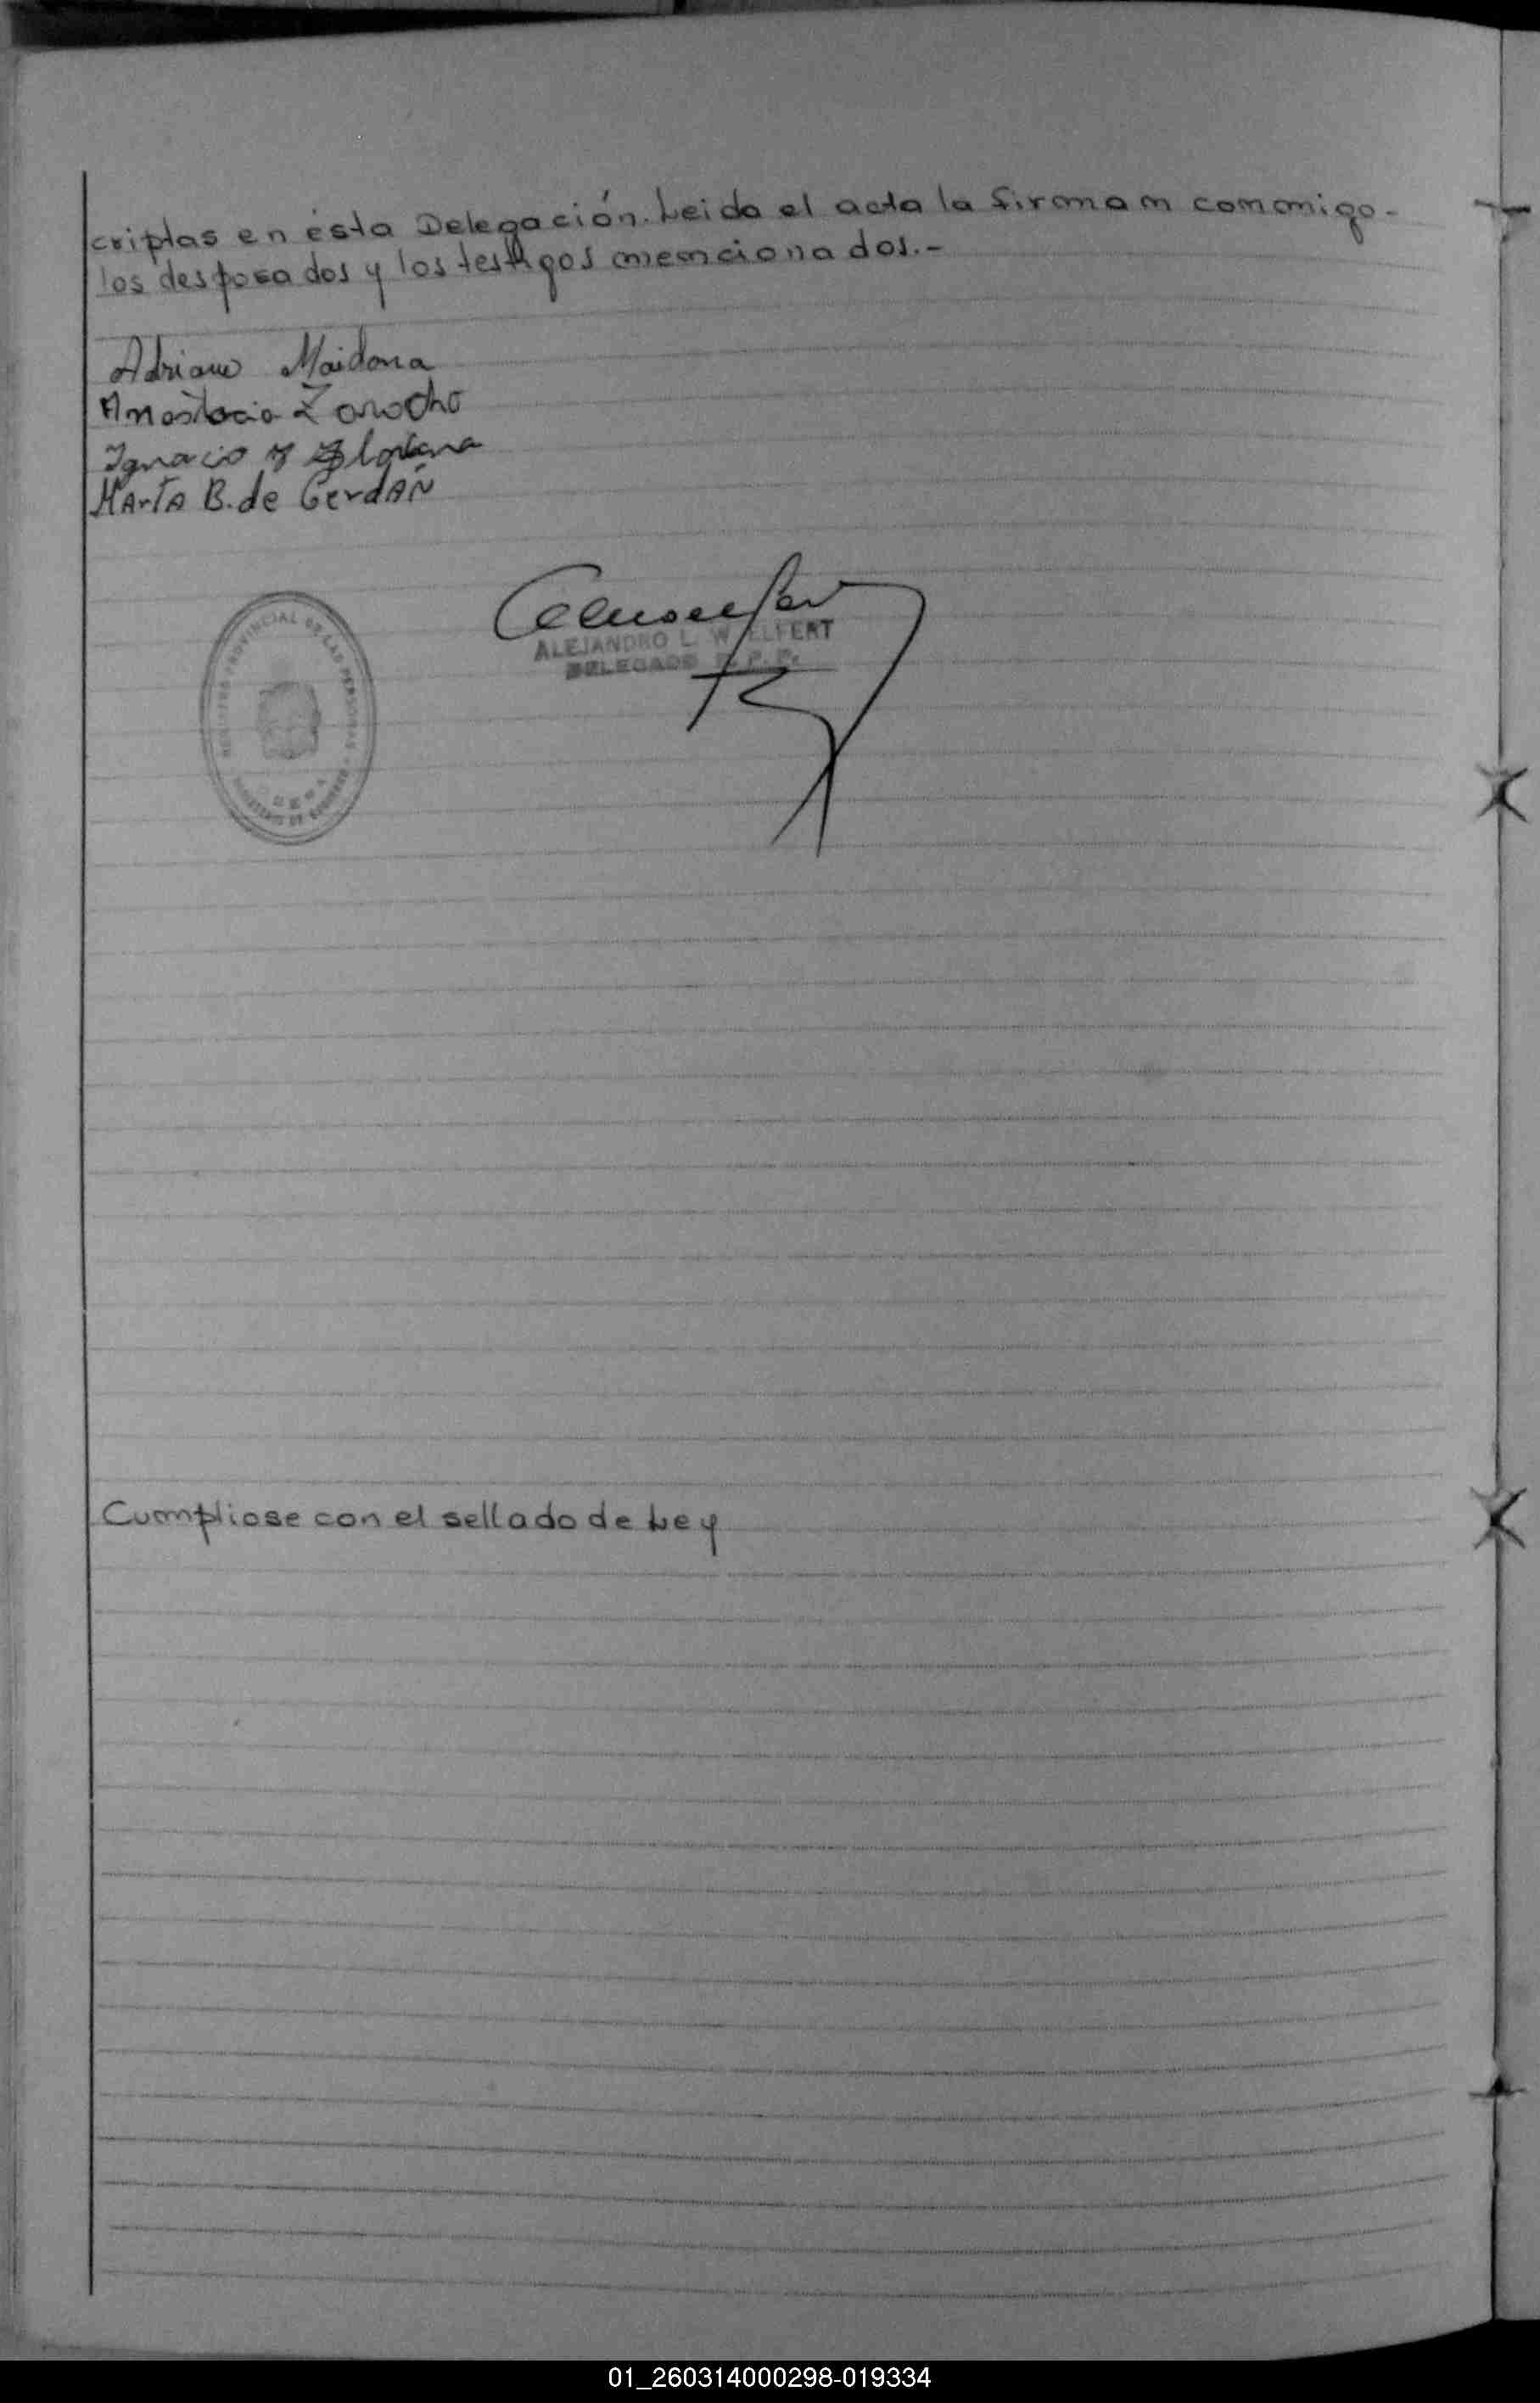 criptas en ésta Delegación. Leida el acta la firman conmigo-
los desposados y los testigos mencionados.-
Adriana Maidana
Anastacio Zarocho
Ignacio
Marta B. de Cerdán
REGISTRO PROVINCIAL DE LAS PERSONAS
MINISTERIO DE GOBIERNO
ALEJANDRO L. W. ELFERT
DELEGADO R. P. P.
Cumpliose con el sellado de Ley
01_260314000298-019334